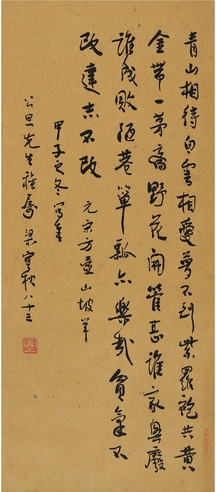 青山相待白雲相愛夢不到紫羅袍共黃
金帶一茅齋野花開管甚誰家興廢
誰成敗陋巷簞瓢亦樂哉貧氣不
改達志不改 元宋方壺山坡羊
甲子之冬寫奉
公旦先生雅屬 梁寔秋八十三